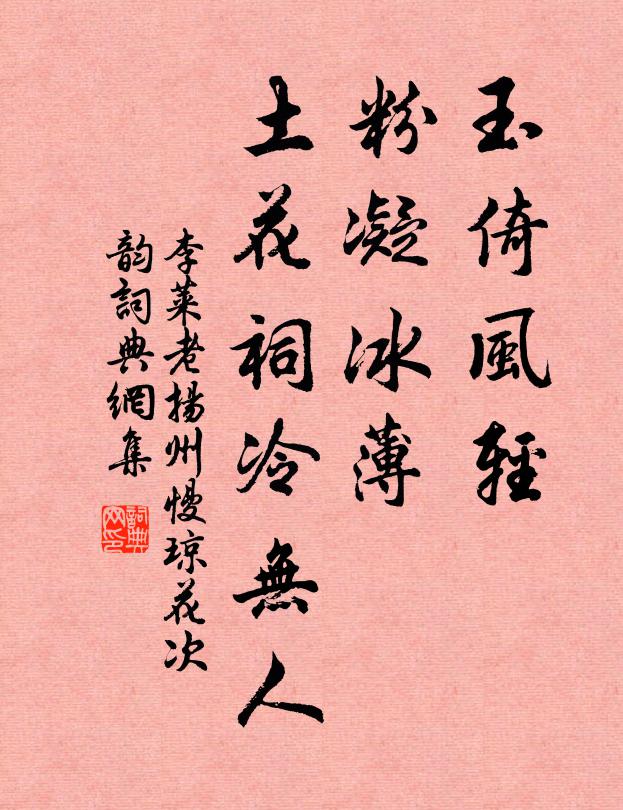 玉倚風輕
粉凝冰薄
土花祠冷無人
李萊老揚州慢瓊花次
韵詞典網集
詞典
网印